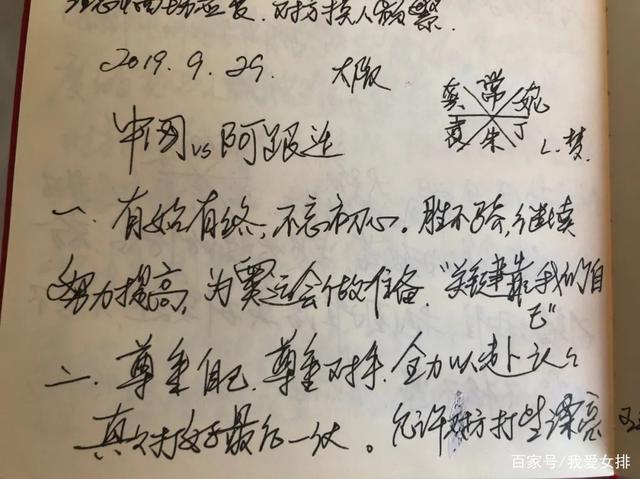 对方换人频繁.
2019.9.29. 大阪
常
朱 丁
L.梦.
中国vs阿根廷
一. 有始有终,不忘初心。胜不骄,继续
努力提高,为奥运会做准备."关键靠我们自
己"
二. 尊重自己.尊重对手.全力以赴认々
真々打好最后一仗。允许对方打些漂亮
百家号/我爱女排